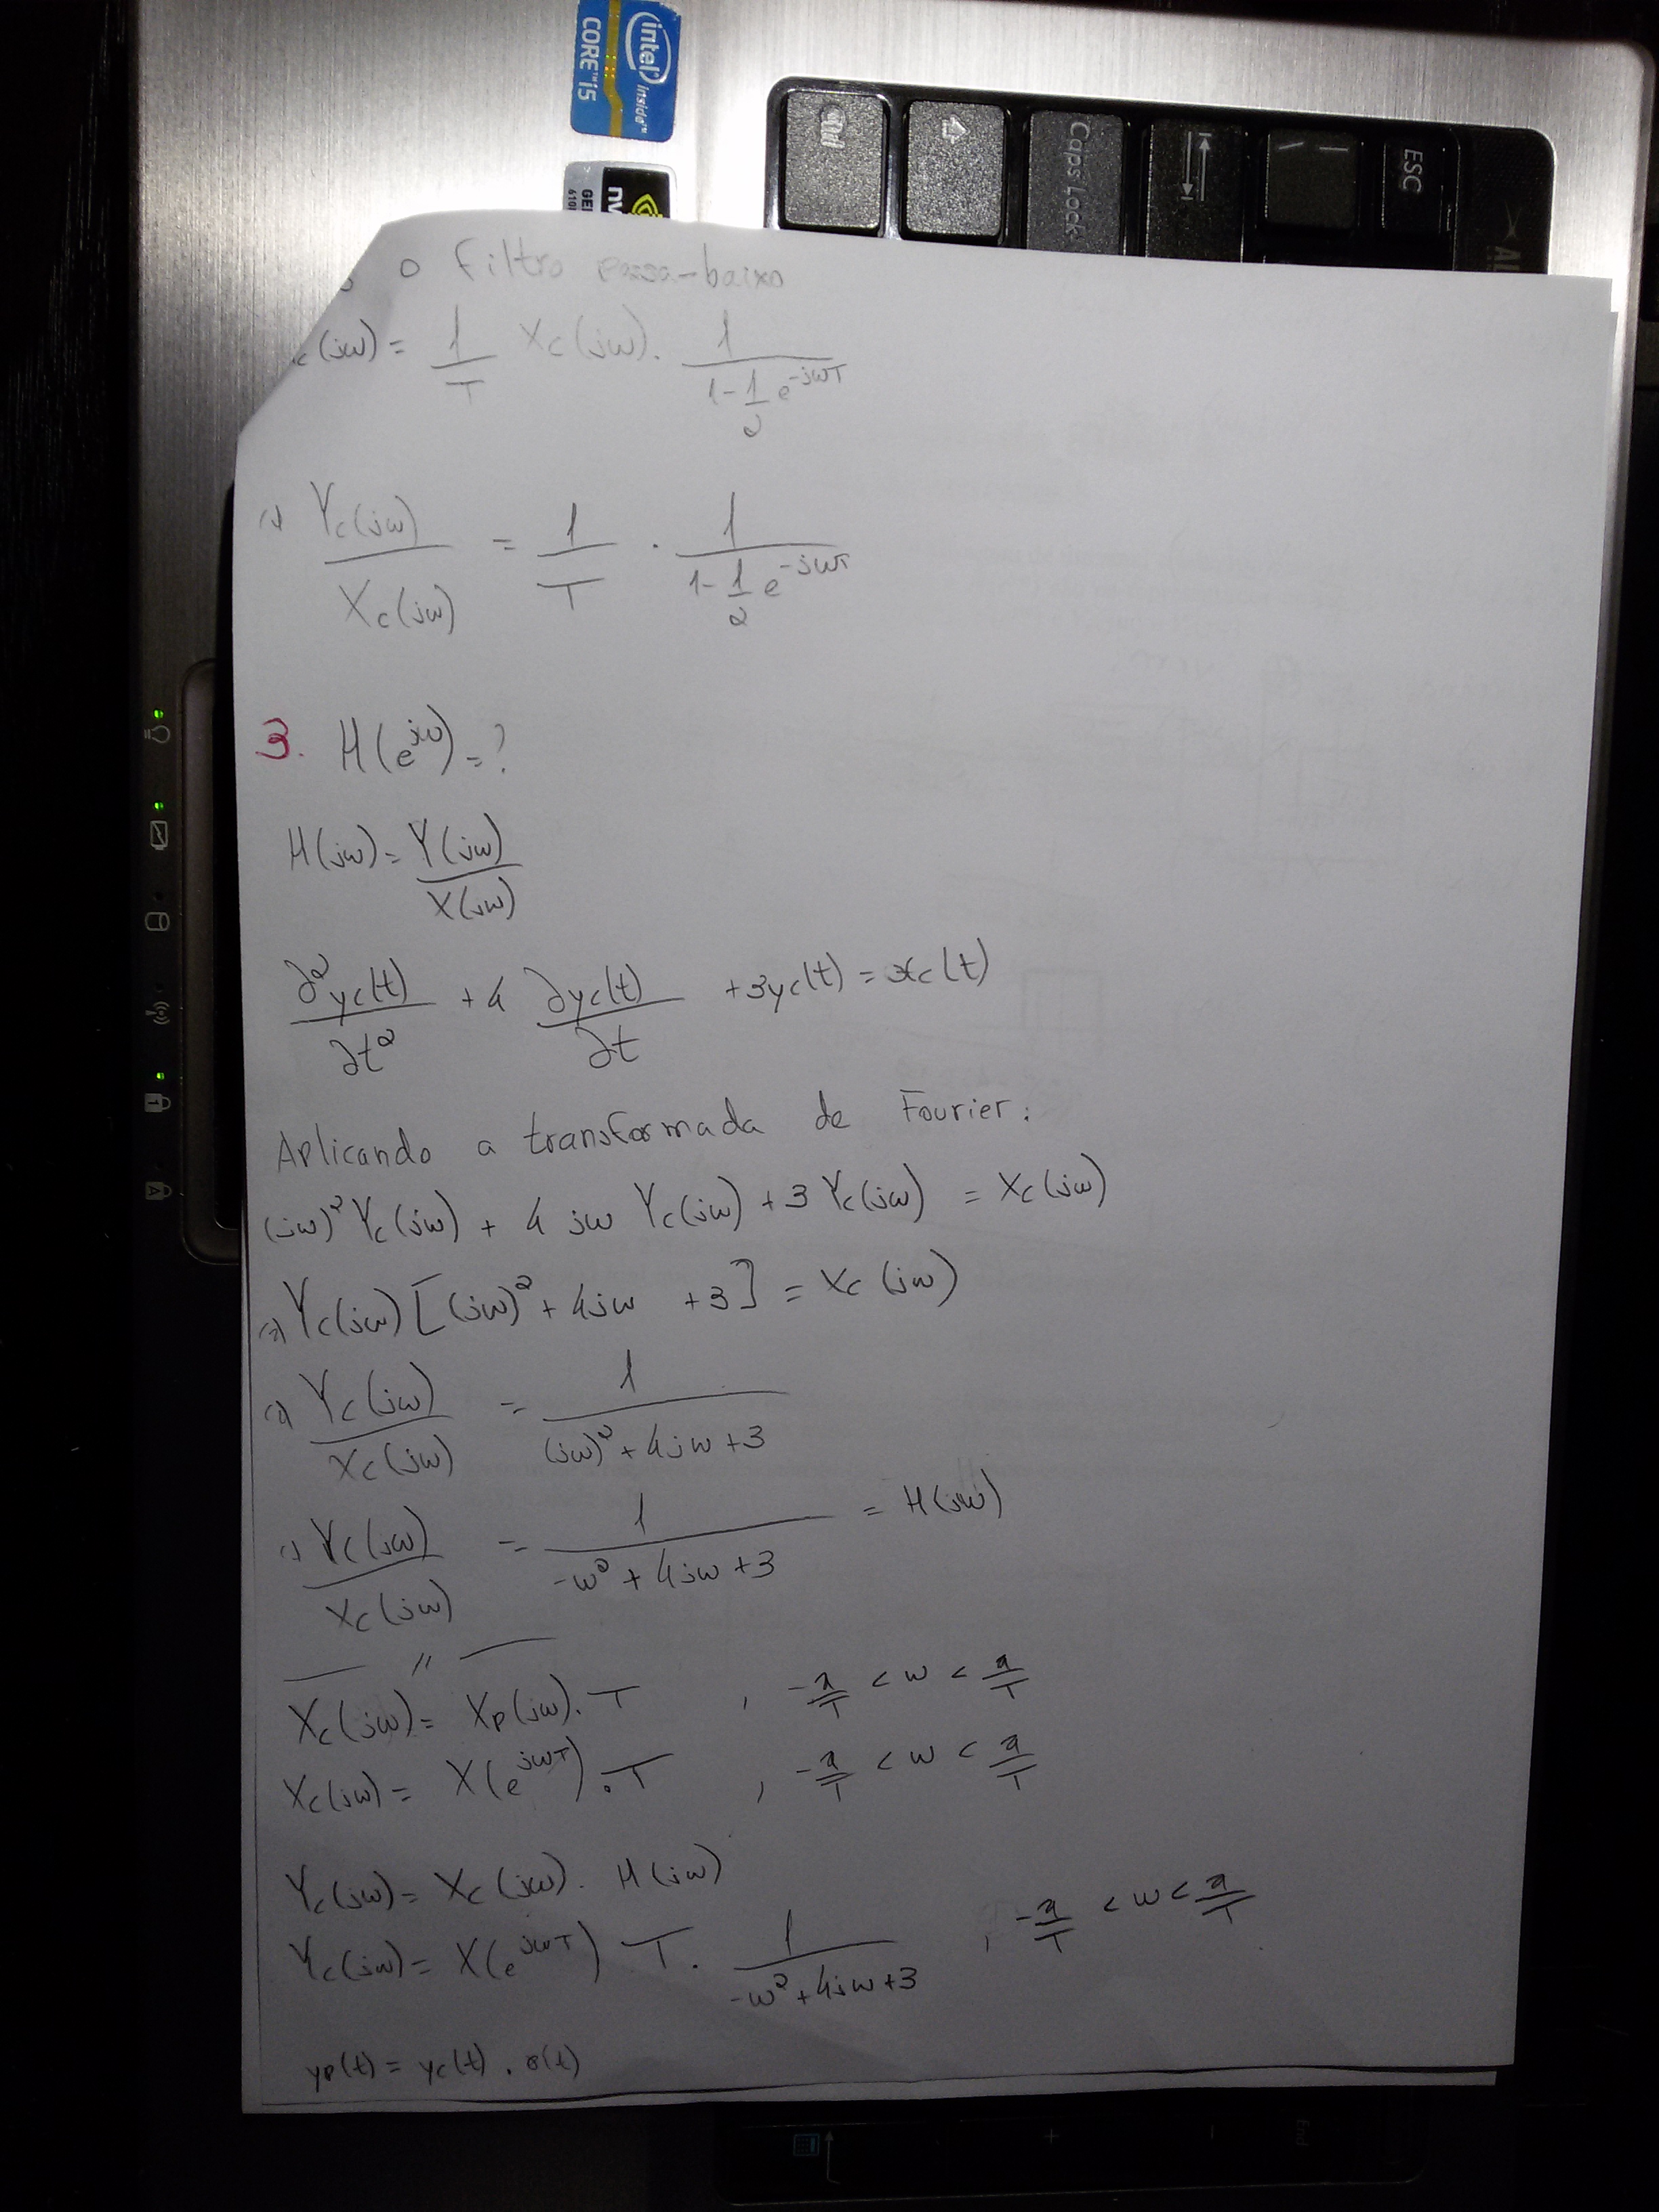 intel inside™
CORE™ i5
Caps Lock
ESC
o Filtro passa-baixo
c(jω) = 1/T Xc(jω). 1/(1-1/2 e^-jωT)
(=) Yc(jω)/Xc(jω) = 1/T . 1/(1-1/2 e^-jωT)
3. H(e^jω) = ?
H(jω) = Y(jω)/X(jω)
∂²yc(t)/∂t² + 4 ∂yc(t)/∂t + 3yc(t) = xc(t)
Aplicando a transformada de Fourier:
(jω)² Yc(jω) + 4 jω Yc(jω) + 3 Yc(jω) = Xc(jω)
(=) Yc(jω) [(jω)² + 4jω + 3] = Xc(jω)
(=) Yc(jω)/Xc(jω) = 1/((jω)² + 4jω + 3)
(=) Yc(jω)/Xc(jω) = 1/(-ω² + 4jω + 3) = H(jω)
— " —
Xc(jω) = Xp(jω). T , -π/T < ω < π/T
Xc(jω) = X(e^jωT) . T , -π/T < ω < π/T
Yc(jω) = Xc(jω). H(jω)
Yc(jω) = X(e^jωT) T . 1/(-ω² + 4jω + 3) , -π/T < ω < π/T
yp(t) = yc(t) . s(t)
End